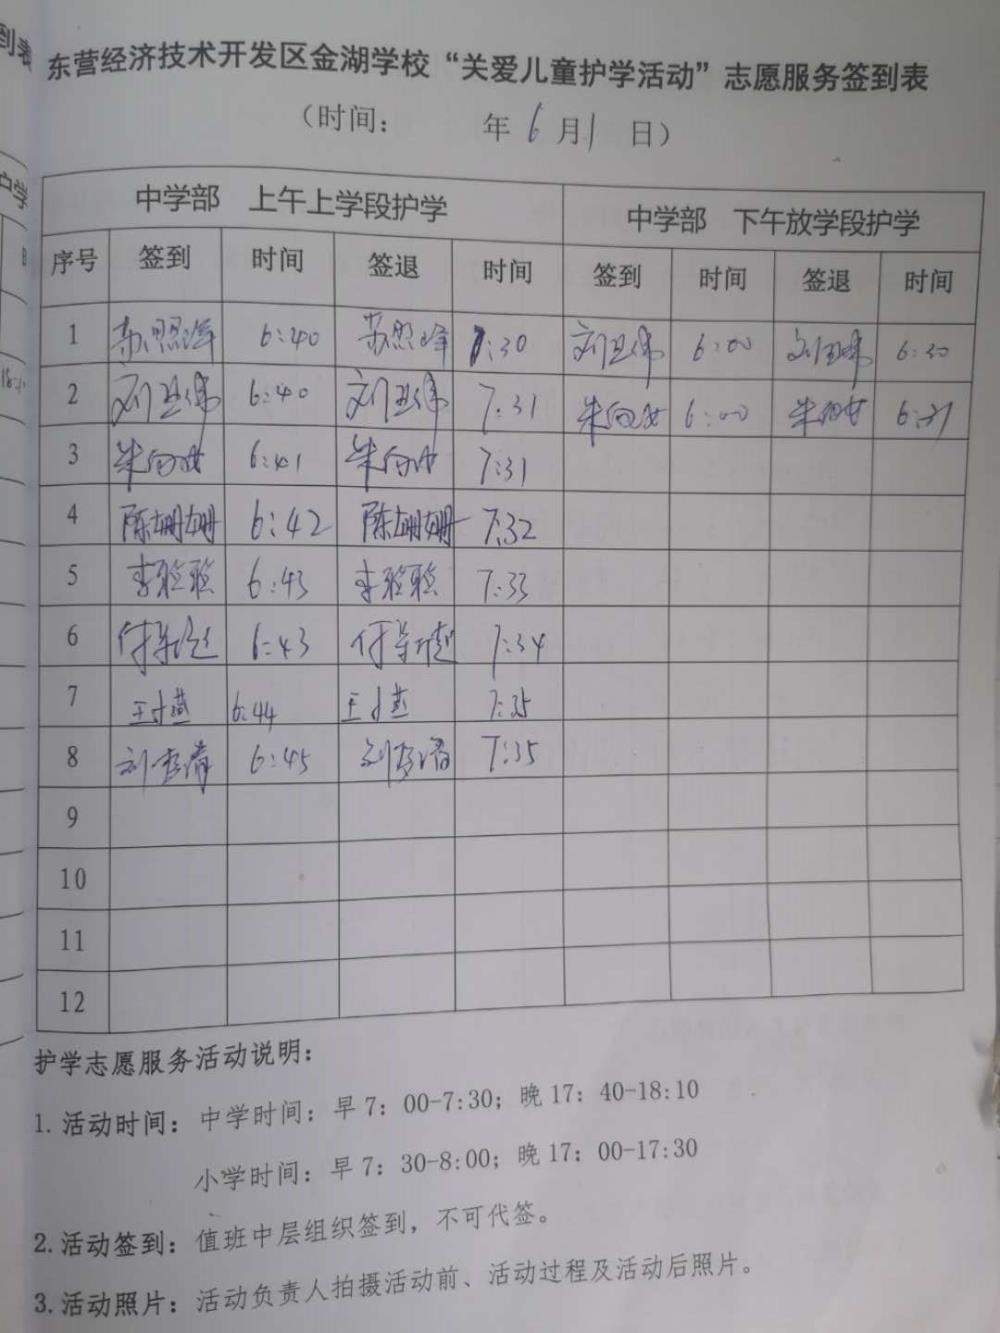 东营经济技术开发区金湖学校“关爱儿童护学活动”志愿服务签到表
（时间： 年 6 月 1 日）
中学部 上午上学段护学 中学部 下午放学段护学
序号 签到 时间 签退 时间 签到 时间 签退 时间
1 苏照峰 6:40 苏照峰 7:30 刘卫伟 6:00 刘卫伟 6:30
2 刘卫伟 6:40 刘卫伟 7:31 朱向 6:00 朱向 6:31
3 朱向 6:41 朱向 7:31
4 陈姗姗 6:42 陈姗姗 7:32
5 李聪聪 6:43 李聪聪 7:33
6 6:43 7:34
7 王 燕 6:44 王 燕 7:35
8 刘 清 6:45 刘 清 7:35
9
10
11
12
护学志愿服务活动说明：
1.活动时间：中学时间：早7：00-7:30；晚17：40-18:10
小学时间：早7：30-8:00；晚17：00-17:30
2.活动签到：值班中层组织签到，不可代签。
3.活动照片：活动负责人拍摄活动前、活动过程及活动后照片。